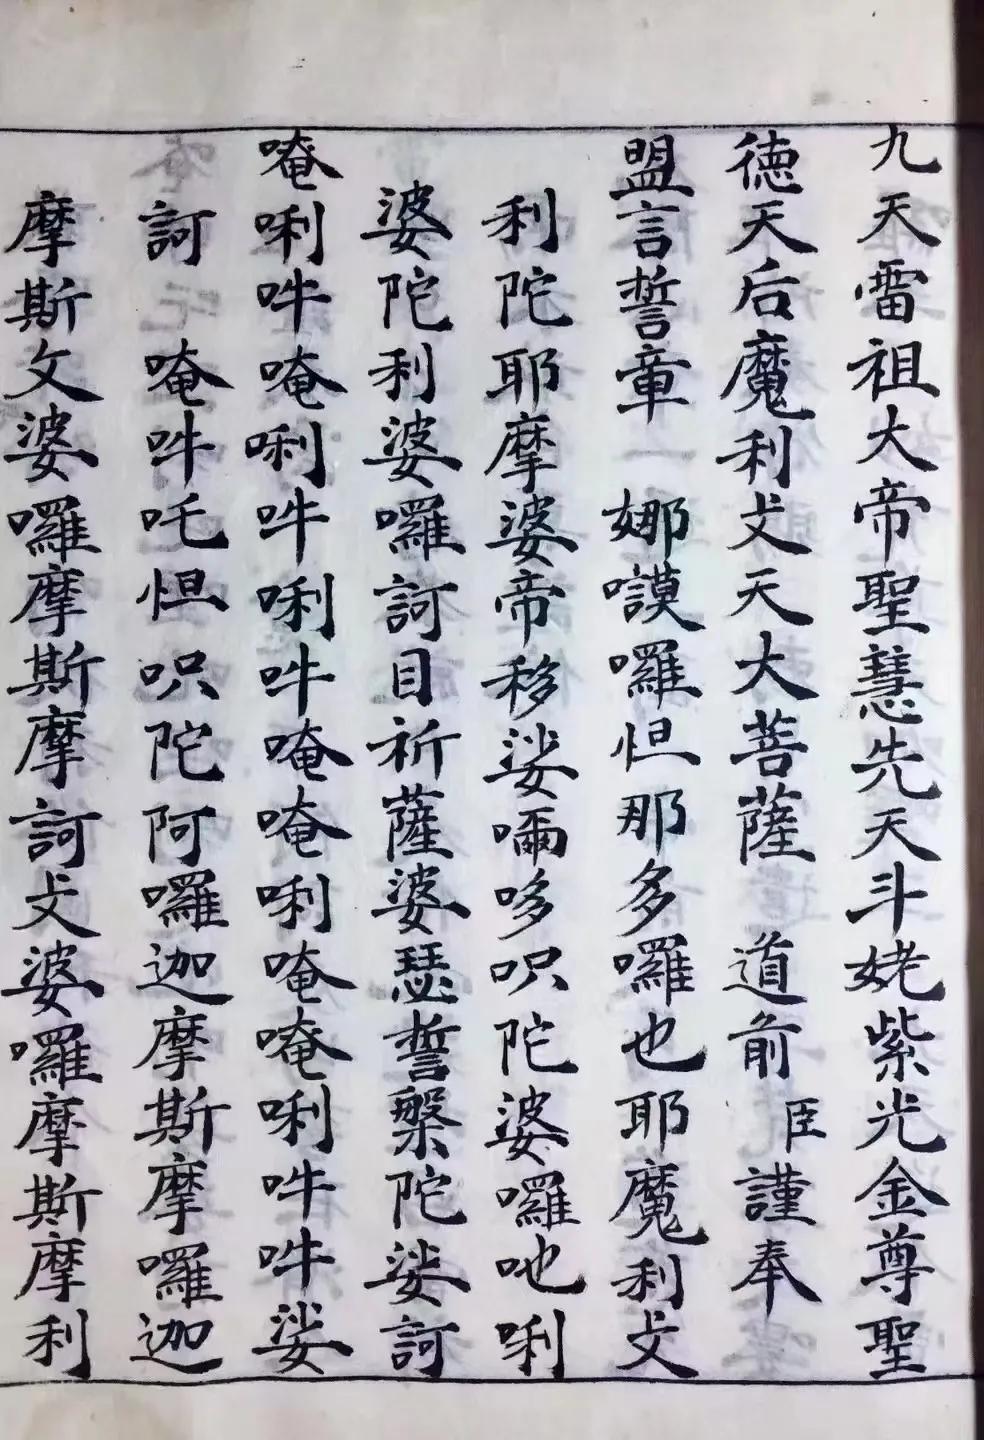 九天雷祖大帝聖慧先天斗姥紫光金尊聖
德天后魔利攴天大菩薩 道前臣謹奉
盟言誓章 娜謨囉怛那多囉也耶魔利攴
利陀耶摩婆帝移娑嚩哆呎陀婆囉吔唎
婆陀利婆囉訶目祈薩婆瑟誓槃陀娑訶
唵唎吽唵唎吽唎吽唵唵唎唵唵唎吽吽娑
訶 唵吽吒怛呎陀阿囉迦摩斯摩囉迦
摩斯文婆囉摩斯摩訶攴婆囉摩斯摩利